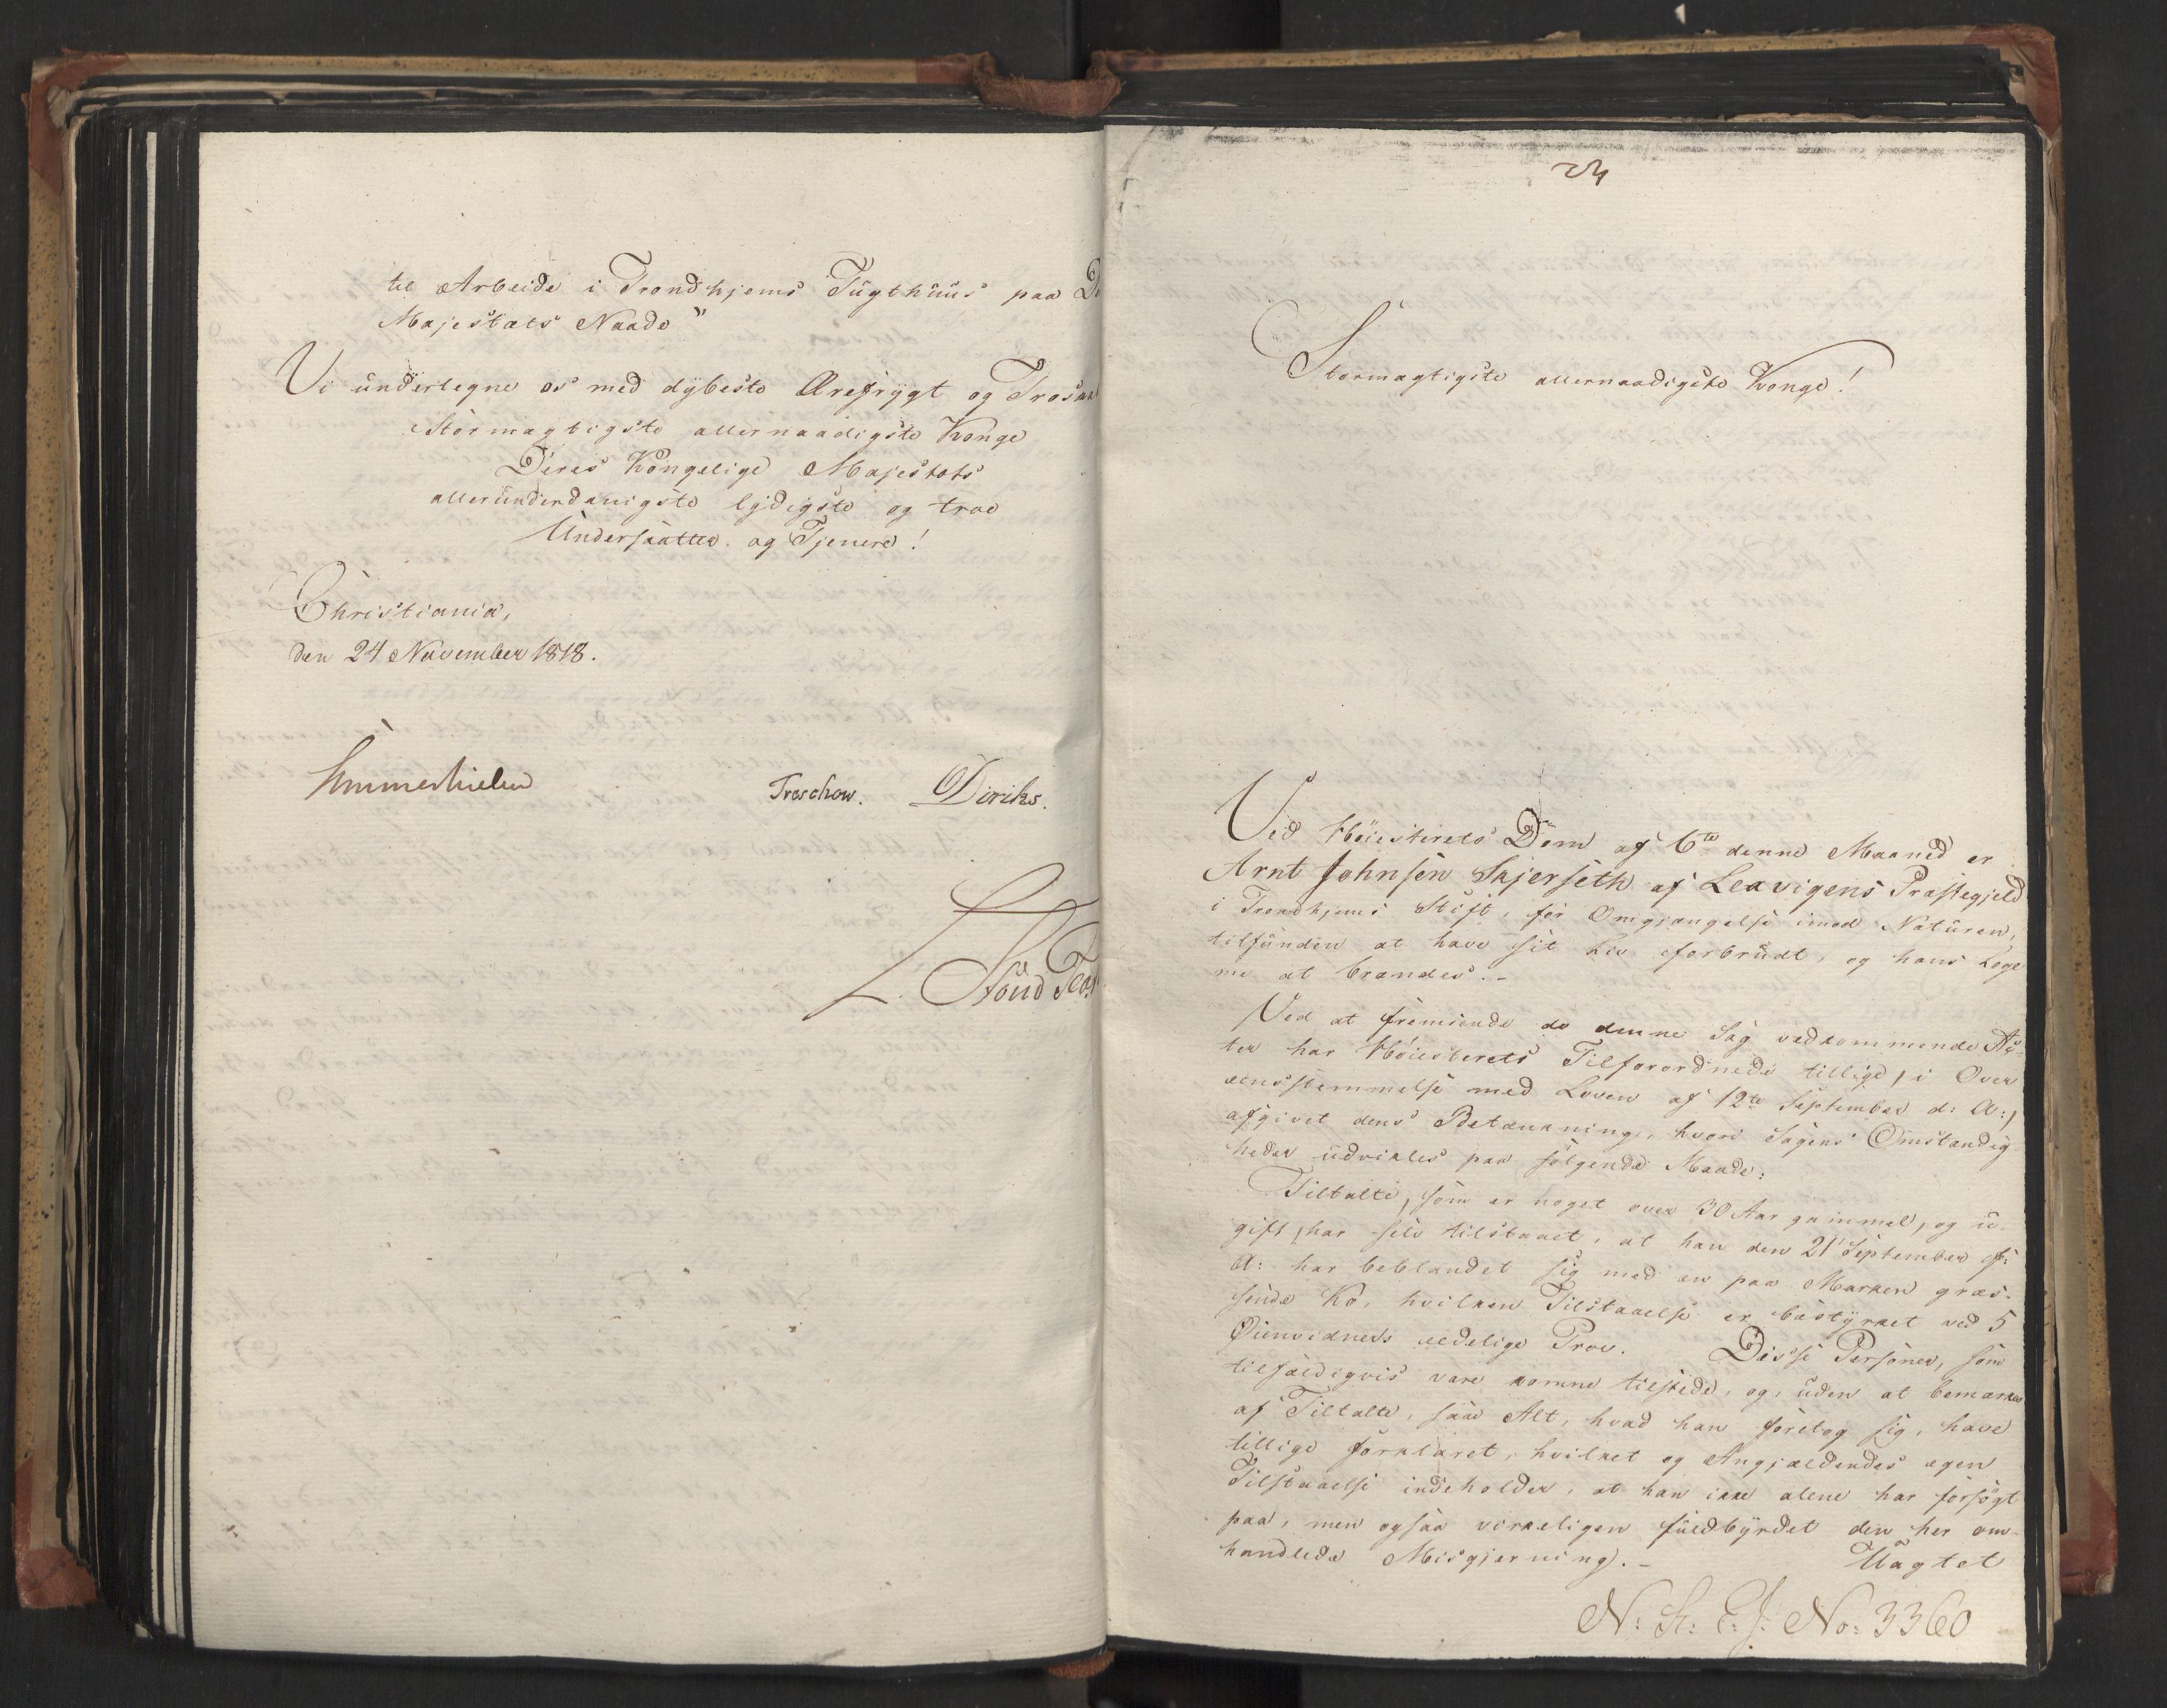 til Arbeide i Trondhjems Tugthuus paa
Majestæts Naade"
Vi undertegne os med dybeste Ærefrygt og
Stormægtigste allernaadigste Konge
Deres Kongelige Majestæts
allerunderdanigste lydigste og troe
Undersaatter og Tjenere!
Christiania,
den 24 November 1818.
Sommerhielm
Treschow. Diriks.
24
Stormægtigste allernaadigste Konge!
Ved Høiesterets Dom af 6te denne Maaned er
Arnt Johnsen Skjerseth af Lexvigens Præstegjeld
i Trondhjems Stift, for Omgjængelse imod Naturen,
tilfunden at have sit Liv forbrudt, og hans Lege
me at brændes.-
Ved at fremsende de denne Sag vedkommende Ac-
ter har Høiesterets Tilforordnede tillige, i Over
eensstemmelse med Loven af 12te September d: A:,
afgivet dens Betænkning, hvori Sagens Omstændig
heder udvikles paa følgende Maade:
Tiltalte, som er noget over 30 Aar gammel, og u-
gift, har selv tilstaaet, at han den 21 September f:
A: har beblandet sig med en paa Marken græs-
sende Ko, hvilken Tilstaaelse er bestyrket ved 5
Øienvidners eedelige Prov. Disse Personer, som
tilfældigvis vare komne tilstede, og, uden at bemærkes
af Tiltalte, saae Alt, hvad han foretog sig, have
tillige forklaret, hvilket og Angjældendes egen
Tilstaaelse indeholder, at han ikke alene har forsøgt
paa, men ogsaa virkeligen fuldbyrdet den her om-
handlede Misgjerning.-
Uagtet
No: 3360